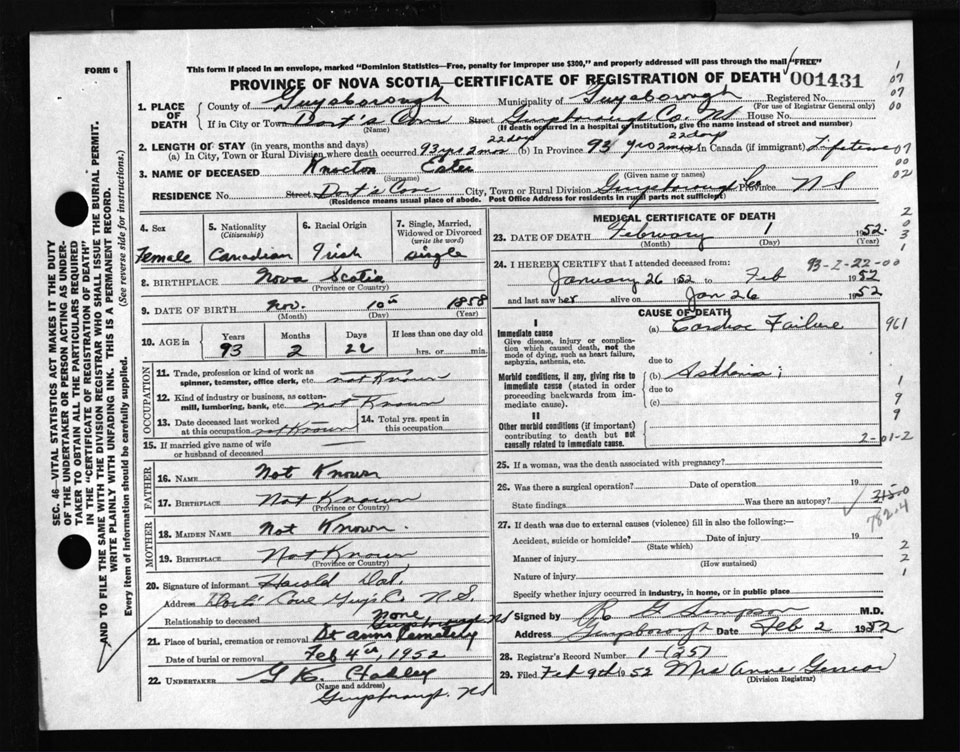 FORM 6
This form if placed in an envelope, marked "Dominion Statistics—Free, penalty for improper use $300," and properly addressed will pass through the mail "FREE"
PROVINCE OF NOVA SCOTIA—CERTIFICATE OF REGISTRATION OF DEATH 001431
1. PLACE OF DEATH County of Guysborough Municipality of Guysborough Registered No. (For use of Registrar General only)
If in City or Town Dort's Cove Street Guysborough Co. NS House No.
(Name) (If death occurred in a hospital or institution, give the name instead of street and number)
2. LENGTH OF STAY (in years, months and days)
(a) In City, Town or Rural Division where death occurred 93 yrs 2 mos 22 days (b) In Province 93 yrs 2 mos 22 days In Canada (if immigrant)
3. NAME OF DECEASED
(Surname) (Given name or names)
RESIDENCE No. Street Dort's Cove City, Town or Rural Division Guysborough Co Province N S
(Residence means usual place of abode. Post Office Address for residents in rural parts not sufficient)
4. Sex Female
5. Nationality (Citizenship) Canadian
6. Racial Origin Irish
7. Single, Married, Widowed or Divorced (write the word) single
8. BIRTHPLACE Nova Scotia
(Province or Country)
9. DATE OF BIRTH Nov. 10th 1858
(Month) (Day) (Year)
10. AGE in Years 93 Months 2 Days 22 If less than one day old hrs. or min.
OCCUPATION
11. Trade, profession or kind of work as spinner, teamster, office clerk, etc. not Known
12. Kind of industry or business, as cotton-mill, lumbering, bank, etc. not Known
13. Date deceased last worked at this occupation not Known
14. Total yrs. spent in this occupation
15. If married give name of wife or husband of deceased
FATHER
16. NAME Not Known
17. BIRTHPLACE Not Known
(Province or Country)
MOTHER
18. MAIDEN NAME Not Known.
19. BIRTHPLACE Not Known
(Province or Country)
20. Signature of informant Harold
Address Dorts Cove Guys Co N.S.
Relationship to deceased None
21. Place of burial, cremation or removal St anns Cemetery
Date of burial or removal Feb 4th, 1952
22. UNDERTAKER G
(Name and address)
Guysborough. NS
MEDICAL CERTIFICATE OF DEATH
23. DATE OF DEATH February 1 1952.
(Month) (Day) (Year)
24. I HEREBY CERTIFY that I attended deceased from: 93-2-22-00
January 26 1952 to Feb 1952
and last saw her alive on Jan 26 1952
CAUSE OF DEATH
I
Immediate cause
Give disease, injury or complication which caused death, not the mode of dying, such as heart failure, asphyxia, asthenia, etc.
(a) Cardiac Failure
due to
Morbid conditions, if any, giving rise to immediate cause (stated in order proceeding backwards from immediate cause).
(b) Asthenia;
due to
(c)
II
Other morbid conditions (if important) contributing to death but not causally related to immediate cause.
2-01-2
25. If a woman, was the death associated with pregnancy?
26. Was there a surgical operation? Date of operation 19
State findings Was there an autopsy?
27. If death was due to external causes (violence) fill in also the following:—
Accident, suicide or homicide? Date of injury 19
(State which)
Manner of injury
(How sustained)
Nature of injury
Specify whether injury occurred in industry, in home, or in public place
Signed by M.D.
Address Guysborough Date Feb 2 1952
28. Registrar's Record Number 1-(25)
29. Filed Feb 9th 1952 Mrs Anne
(Division Registrar)
SEC. 46—VITAL STATISTICS ACT MAKES IT THE DUTY OF THE UNDERTAKER OR PERSON ACTING AS UNDERTAKER TO OBTAIN ALL THE PARTICULARS REQUIRED IN THE "CERTIFICATE OF REGISTRATION OF DEATH" AND TO FILE THE SAME WITH THE DIVISION REGISTRAR WHO SHALL ISSUE THE BURIAL PERMIT.
WRITE PLAINLY WITH UNFADING INK. THIS IS A PERMANENT RECORD.
Every item of information should be carefully supplied. (See reverse side for instructions.)
1
07
07
00
07
00
02
2
0
3
1
961
1
9
9
782.4
2
2
1